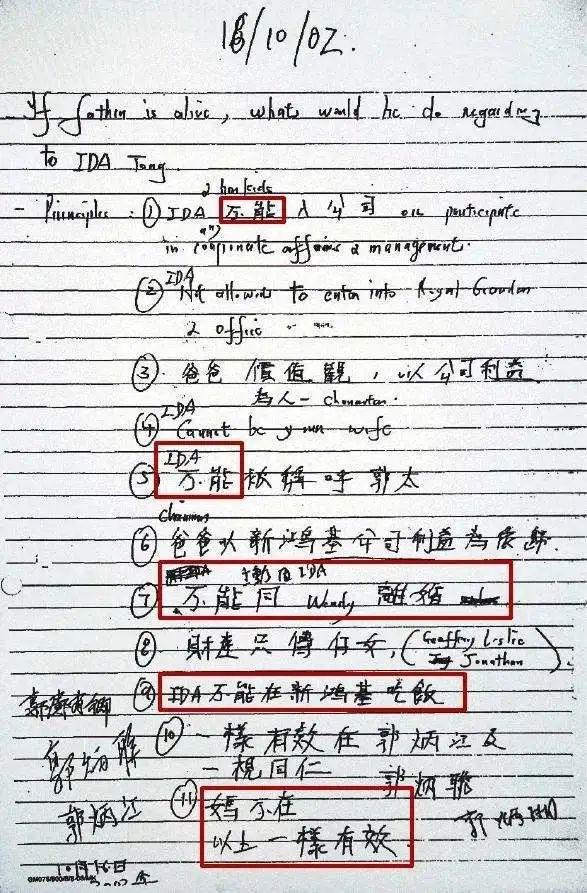 18/10/02.
If father is alive, what would he do regarding
to IDA Tang
2 her kids
- Principles : ① IDA 不能 入公司 or participate
in corporate affairs & management.
IDA
② Not allowed to enter into Royal Garden
& office
③ 爸爸 價值觀, 以公司利益
為人 - character.
IDA
④ Cannot be your wife
IDA
⑤ 不能被稱呼 郭太
chairman
⑥ 爸爸以新鴻基公司利益為依歸.
IDA
⑦ 不能同 Wendy 離婚
⑧ 財產只傳仔女, (Geoffrey Leslie
Jonathan).
⑨ IDA不能在新鴻基吃飯
⑩ 一樣有效在郭炳江及
一視同仁 郭炳聯
郭炳江
⑪ 媽不在
以上一樣有效.
10月16日